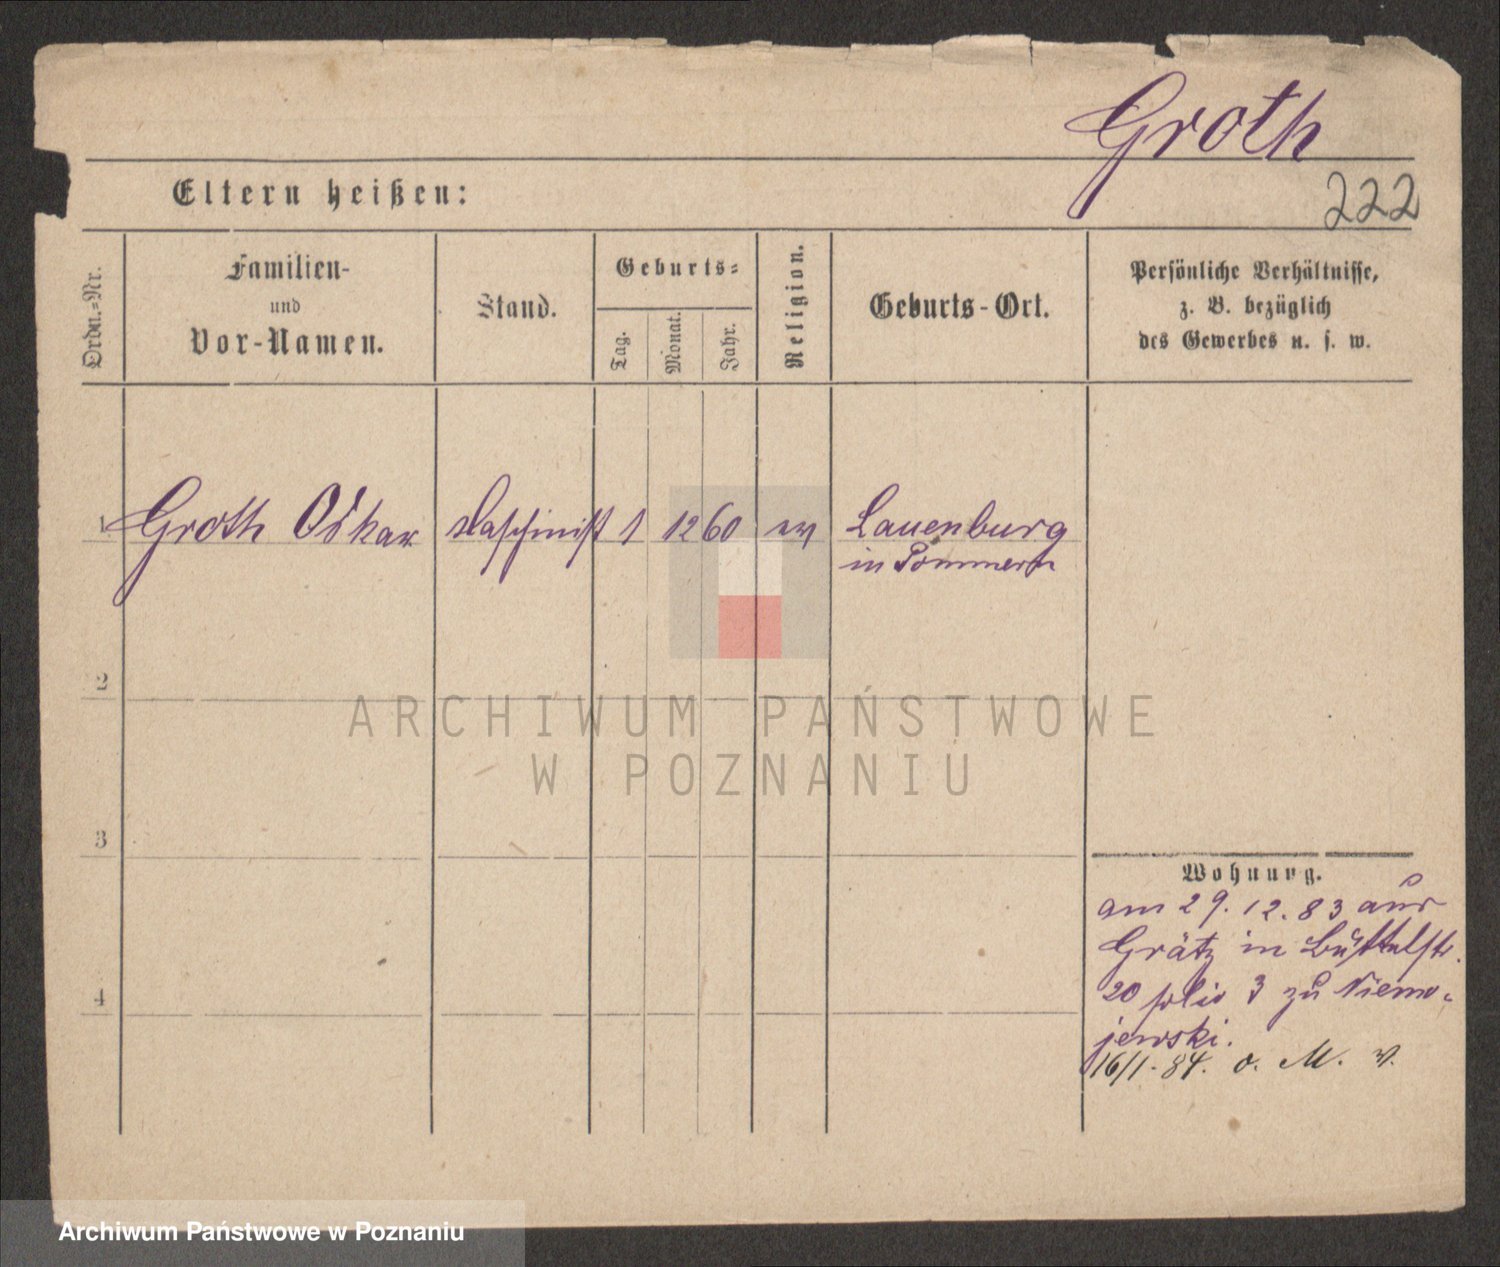 Groth
Eltern heißen:
222
Ordn.-Nr.
Familien-
und
Vor-Namen.
Stand.
Geburts-
Tag.
Monat.
Jahr.
Religion.
Geburts-Ort.
Persönliche Verhältnisse,
z. B. bezüglich
des Gewerbes u. s. w.
1 Groth Oskar 1 12 60 ev Lauenburg
in Pommern
2
3
4
Wohnung.
am 29. 12. 83 aus
Grätz in
20 3 zu Niemo-
jewski.
16/1. 84. o. M. v.
ARCHIWUM PAŃSTWOWE
W POZNANIU
Archiwum Państwowe w Poznaniu